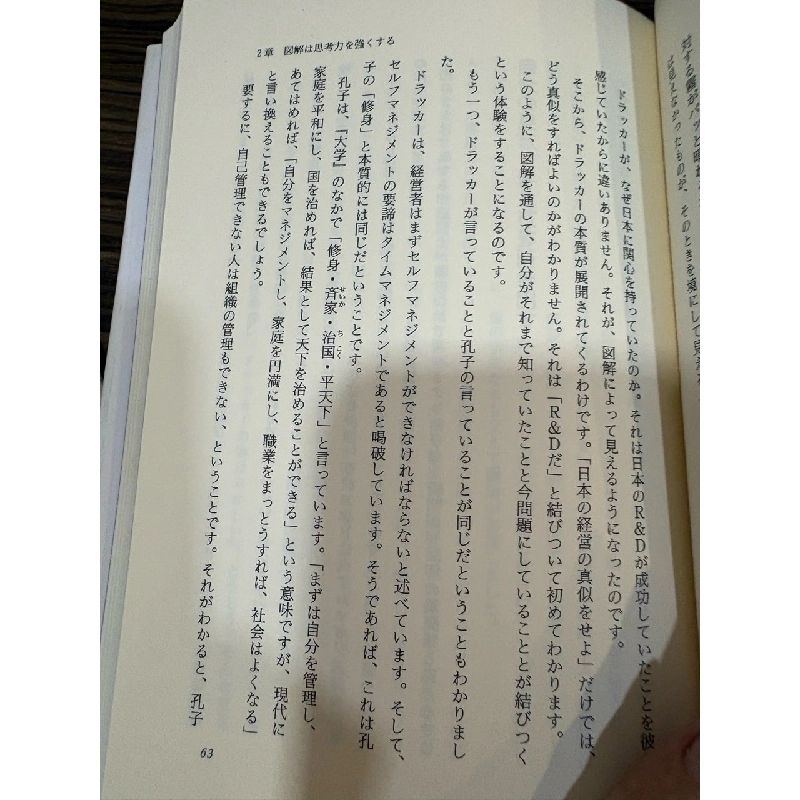 対する
は見えなかったものが、そのときを境にして見え
2章 図解は思考力を強くする
ドラッカーが、なぜ日本に関心を持っていたのか。それは日本のR&Dが成功していたことを彼
感じていたからに違いありません。それが、図解によって見えるようになったのです。
そこから、ドラッカーの本質が展開されてくるわけです。「日本の経営の真似をせよ」だけでは、
どう真似をすればよいのかがわかりません。それは「R&Dだ」と結びついて初めてわかります。
このように、図解を通して、自分がそれまで知っていたことと今問題にしていることとが結びつく
という体験をすることになるのです。
もう一つ、ドラッカーが言っていることと孔子の言っていることが同じだということもわかりまし
た。
ドラッカーは、経営者はまずセルフマネジメントができなければならないと述べています。そして、
セルフマネジメントの要諦はタイムマネジメントであると喝破しています。そうであれば、これは孔
子の「修身」と本質的には同じだということです。
孔子は、『大学』のなかで「修身・斉家・治国・平天下」と言っています。「まずは自分を管理し、
家庭を平和にし、国を治めれば、結果として天下を治めることができる」という意味ですが、現代に
あてはめれば、「自分をマネジメントし、家庭を円満にし、職業をまっとうすれば、社会はよくなる」
と言い換えることもできるでしょう。
要するに、自己管理できない人は組織の管理もできない、ということです。それがわかると、孔子
63